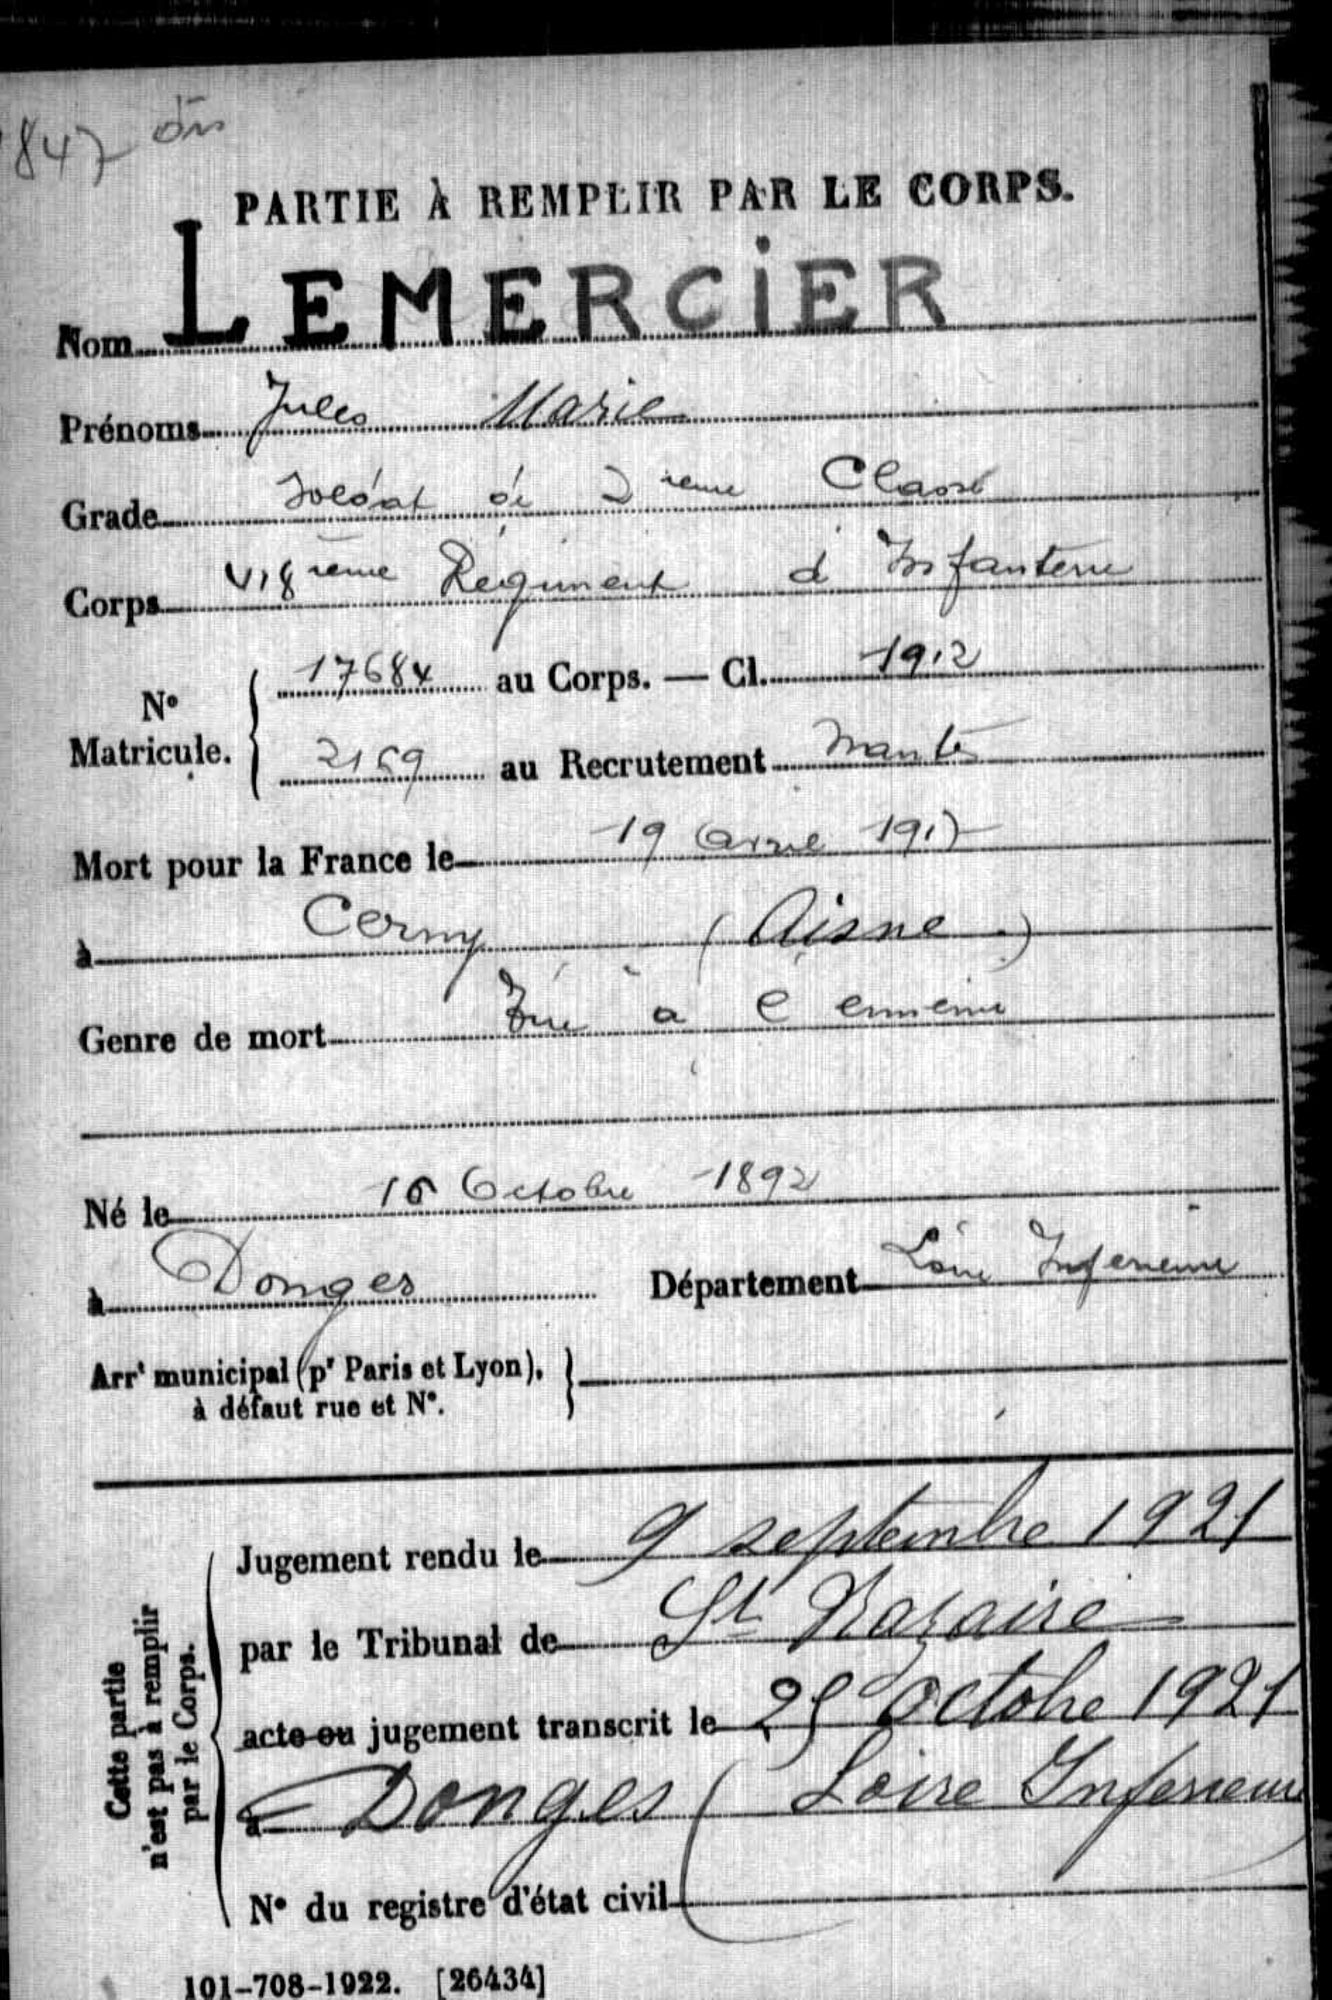 PARTIE À REMPLIR PAR LE CORPS.
Nom LEMERCIER
Prénoms Jules Marie
Grade Soldat de 2ieme Classe
Corps ieme Régiment d Infanterie
N° Matricule. 17684 au Corps. — Cl. 1912
2169 au Recrutement Nantes
Mort pour la France le 19 avril 1917
à Cerny (Aisne)
Genre de mort Tué à l ennemi
Né le 16 Octobre 1892
à Donges Département Loire Inferieure
Arrt municipal (pr Paris et Lyon),
à défaut rue et N°.
Cette partie
n'est pas à remplir
par le Corps.
Jugement rendu le 9 septembre 1921
par le Tribunal de St Nazaire
acte ou jugement transcrit le 25 Octobre 1921
à Donges (Loire Inferieure
N° du registre d'état civil
101-708-1922. [26434]